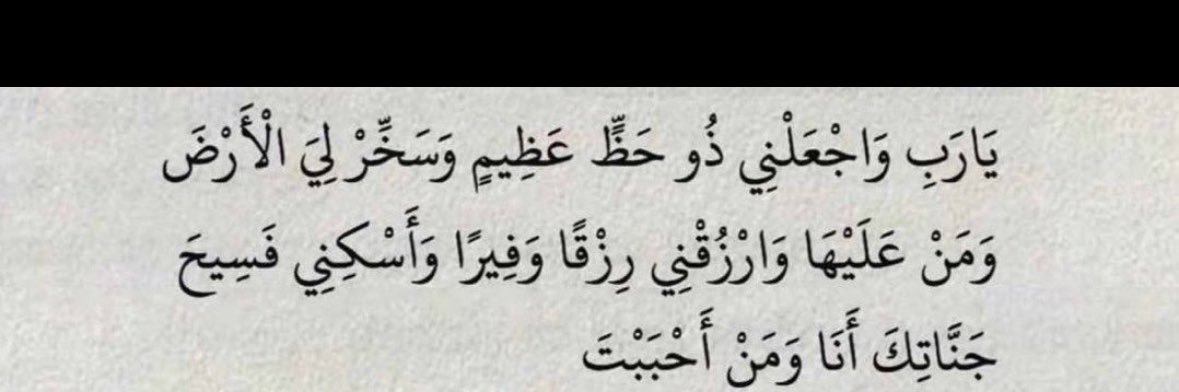 يَارَبِ وَاجْعَلْنِي ذُو حَظٍّ عَظِيمٍ وَسَخِّرْ لِيَ الْأَرْضَ
وَمَنْ عَلَيْهَا وَارْزُقْنِي رِزْقًا وَفِيرًا وَأَسْكِنِي فَسِيحَ
جَنَّاتِكَ أَنَا وَمَنْ أَحْبَبْتَ